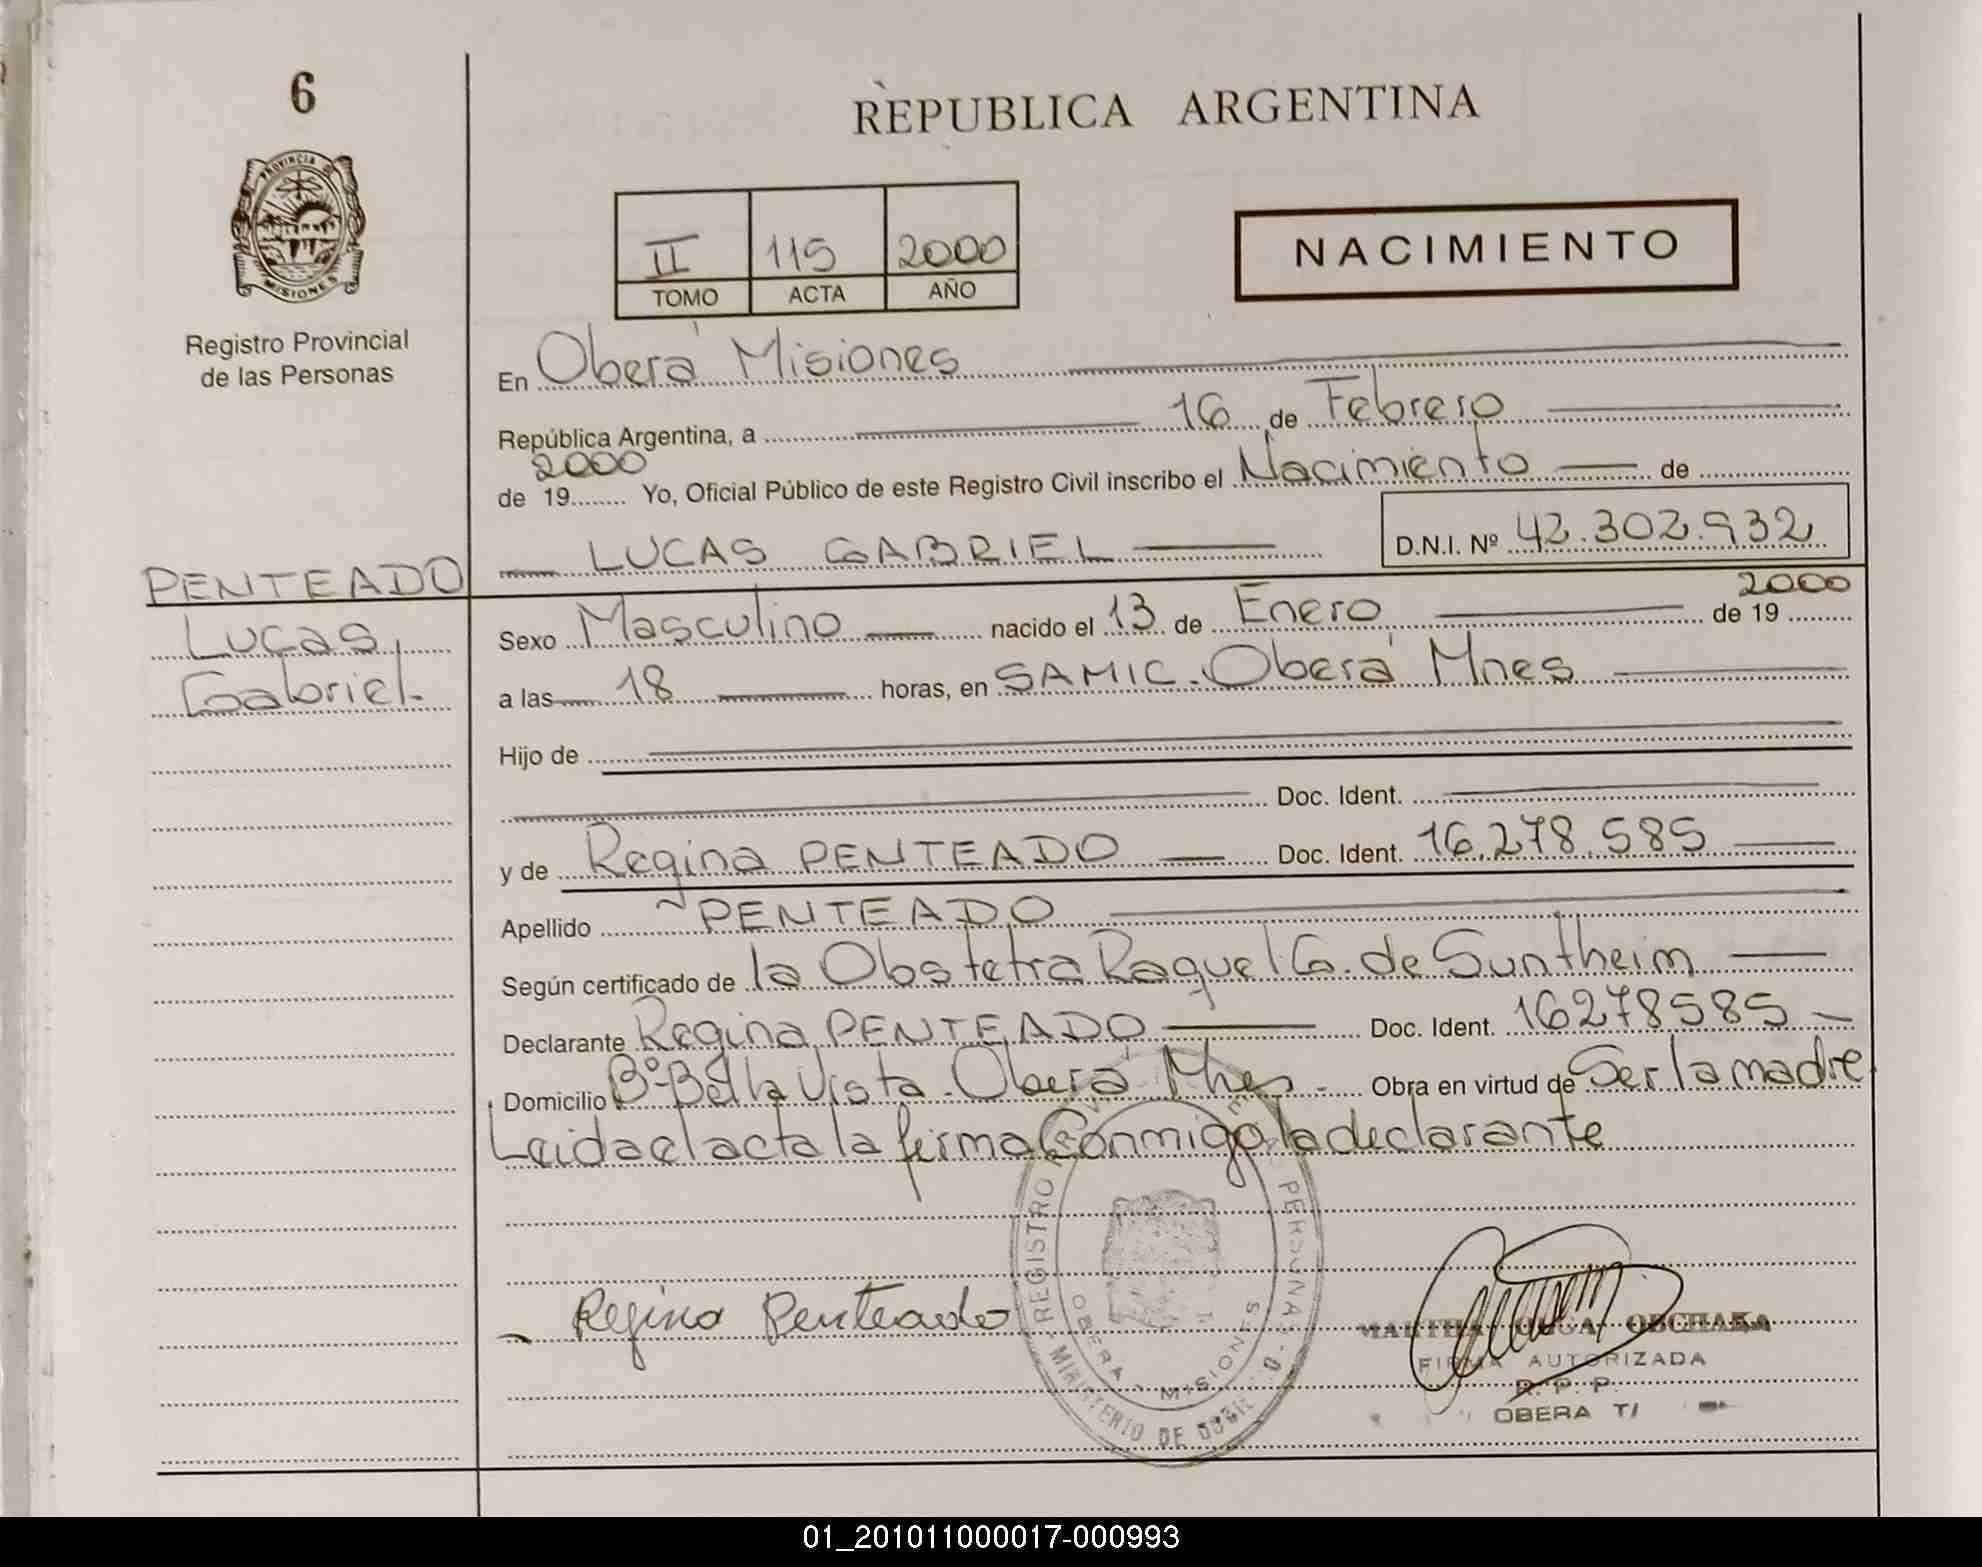 6
REPUBLICA ARGENTINA
PROVINCIA DE
MISIONES
Registro Provincial
de las Personas
II 115 2000
TOMO ACTA AÑO
NACIMIENTO
En Oberá Misiones
República Argentina, a 16 de Febrero
2000
de 19........ Yo, Oficial Público de este Registro Civil inscribo el Nacimiento de
LUCAS GABRIEL D.N.I. Nº 42.302.932
PENTEADO
Lucas,
Gabriel.-
2000
Sexo Masculino nacido el 13 de Enero de 19
a las 18 horas, en SAMIC. Oberá Mnes
Hijo de
Doc. Ident.
y de Regina PENTEADO Doc. Ident. 16.278.585
Apellido PENTEADO
Según certificado de la Obstetra Raquel G. de Suntheim
Declarante Regina PENTEADO Doc. Ident. 16278585
Domicilio Bº Bella Vista. Oberá Mnes - Obra en virtud de Ser la madre
Leida el acta la firma Conmigo la declarante
REGISTRO PERSONAS
OBERA - MISIONES
MINISTERIO DE
Regina Penteado
MARTHA OLGA OBCHAKA
FIRMA AUTORIZADA
R. P. P.
OBERA
01_201011000017-000993